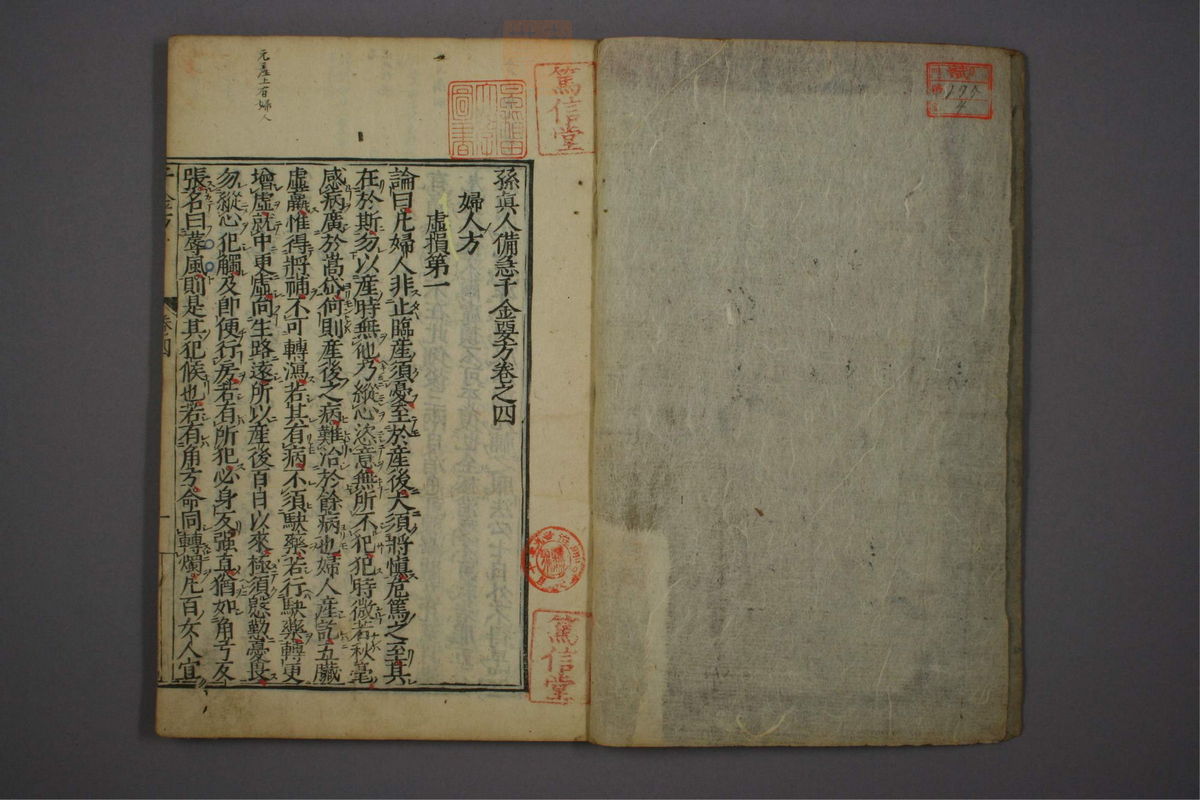 孫眞人備急千金要方卷之四
婦人方
虛損第一
論曰凡婦人非止臨產須憂至於產後大須將愼危篤之至其
在於斯勿以產時無他乃縱心恣意無所不犯犯時微若秋毫
感病廣於嵩岱何則產後之病難治於餘病也婦人產訖五臟
虛羸惟得將補不可轉瀉若其有病不須駃藥若行駃藥轉更
增虛就中更虛向生路遠所以產後百日以來極須慇懃憂畏
勿縱心犯觸及即便行房若有所犯必身反強直猶如角弓反
張名曰蓐風則是其犯候也若有角弓命同轉燭凡百女人宜
篤信堂
圖書
篤信堂